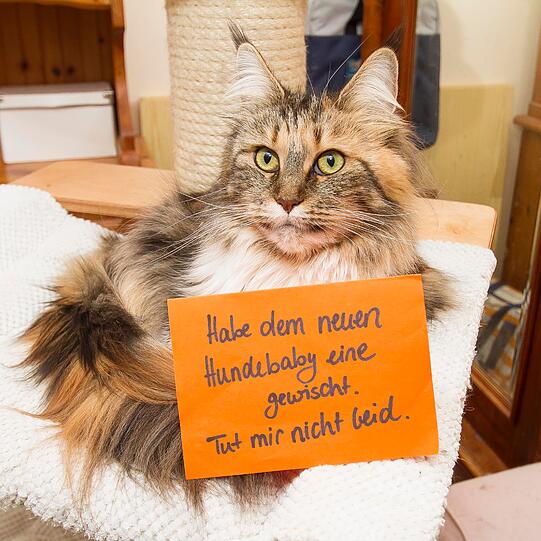 Habe dem neuen
Hundebaby eine
gewischt.
Tut mir nicht leid.